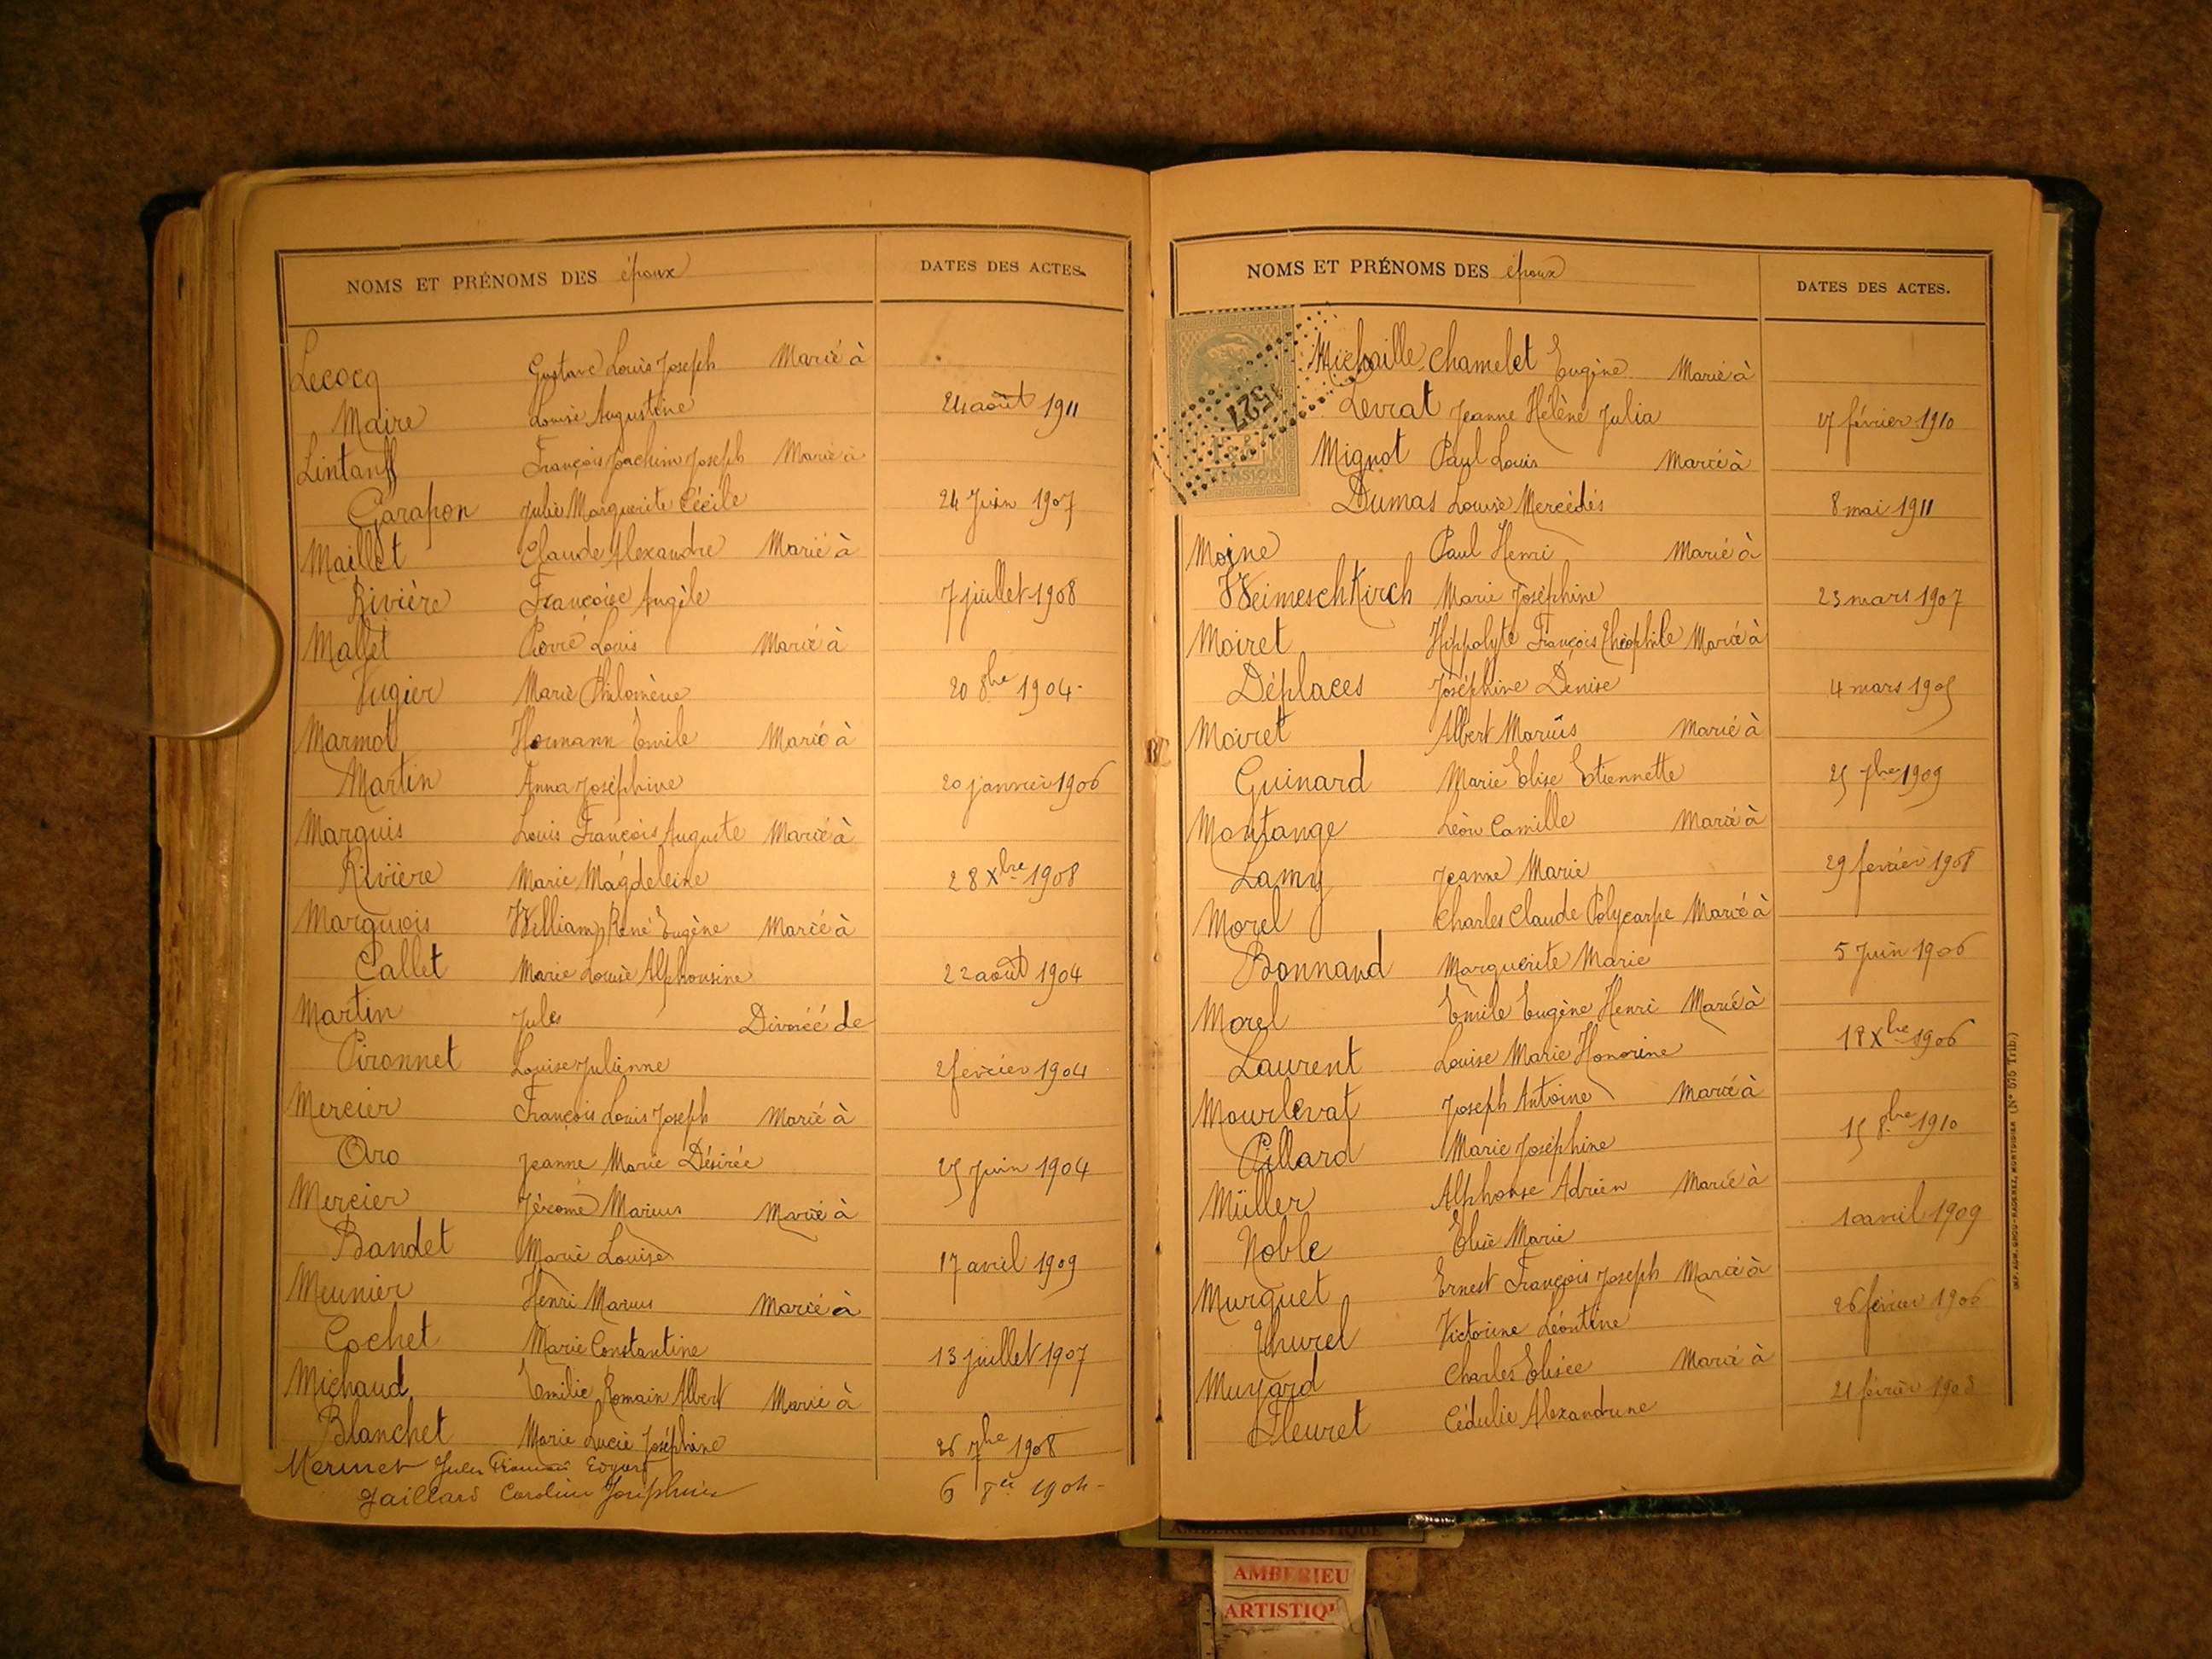 NOMS ET PRÉNOMS DES époux DATES DES ACTES.
Lecocq Gustave Louis Joseph Marié à
Maire Louise Augustine 24 août 1911
Lintanff François Joachim Joseph Marié à
Garapon Julie Marguerite Cécile 24 Juin 1907
Maillet Claude Alexandre Marié à
Rivière Françoise Angèle 7 juillet 1908
Mallet Pierre Louis Marié à
Vugier Marie Philomène 20 8bre 1904
Marmot Hermann Emile Marié à
Martin Anna Joséphine 20 janvier 1906
Marquis Louis François Auguste Marié à
Rivière Marie Magdeleine 28 Xbre 1908
Marquois William René Eugène Marié à
Callet Marie Louise Alphonsine 22 août 1904
Martin Jules Divorcé de
Pironnet Louise Julienne 2 février 1904
Mercier François Louis Joseph Marié à
Oro Jeanne Marie Désirée 25 Juin 1904
Mercier Jérôme Marius Marié à
Bandet Marie Louise 17 avril 1909
Meunier Henri Marius Marié à
Cochet Marie Constantine 13 juillet 1907
Michaud Emilie Romain Albert Marié à
Blanchet Marie Lucie Joséphine 26 7bre 1908
Mermet Jules François
Gaillard Caroline Joséphine 6 8bre 1904
NOMS ET PRÉNOMS DES époux DATES DES ACTES.
Michaille Chamelet Eugène Marié à
Levrat Jeanne Hélène Julia 17 février 1910
1527
Mignot Paul Louis Marié à
Dumas Louise Mercédès 8 mai 1911
Moine Paul Henri Marié à
WeimeschKirch Marie Joséphine 23 mars 1907
Moiret Hippolyte François Théophile Marié à
Déplaces Joséphine Denise 4 mars 1905
Moiret Albert Marius Marié à
Guinard Marie Elise Etiennette 25 7bre 1909
Montange Léon Camille Marié à
Lamy Jeanne Marie 29 février 1908
Morel Charles Claude Polycarpe Marié à
Bonnand Marguerite Marie 5 Juin 1906
Morel Emile Eugène Henri Marié à
Laurent Louise Marie Honorine 18 Xbre 1906
Mourlevat Joseph Antoine Marié à
Pillard Marie Joséphine 15 8bre 1910
Müller Alphonse Adrien Marié à
Noble Elise Marie 10 avril 1909
Murguet Ernest François Joseph Marié à
Thurel Victorine Léontine 26 février 1906
Muyard Charles Elisée Marié à
Fleuret Cédulie Alexandrine 21 février 1908
AMBERIEU ARTISTIQUE
AMBERIEU
ARTISTIQU